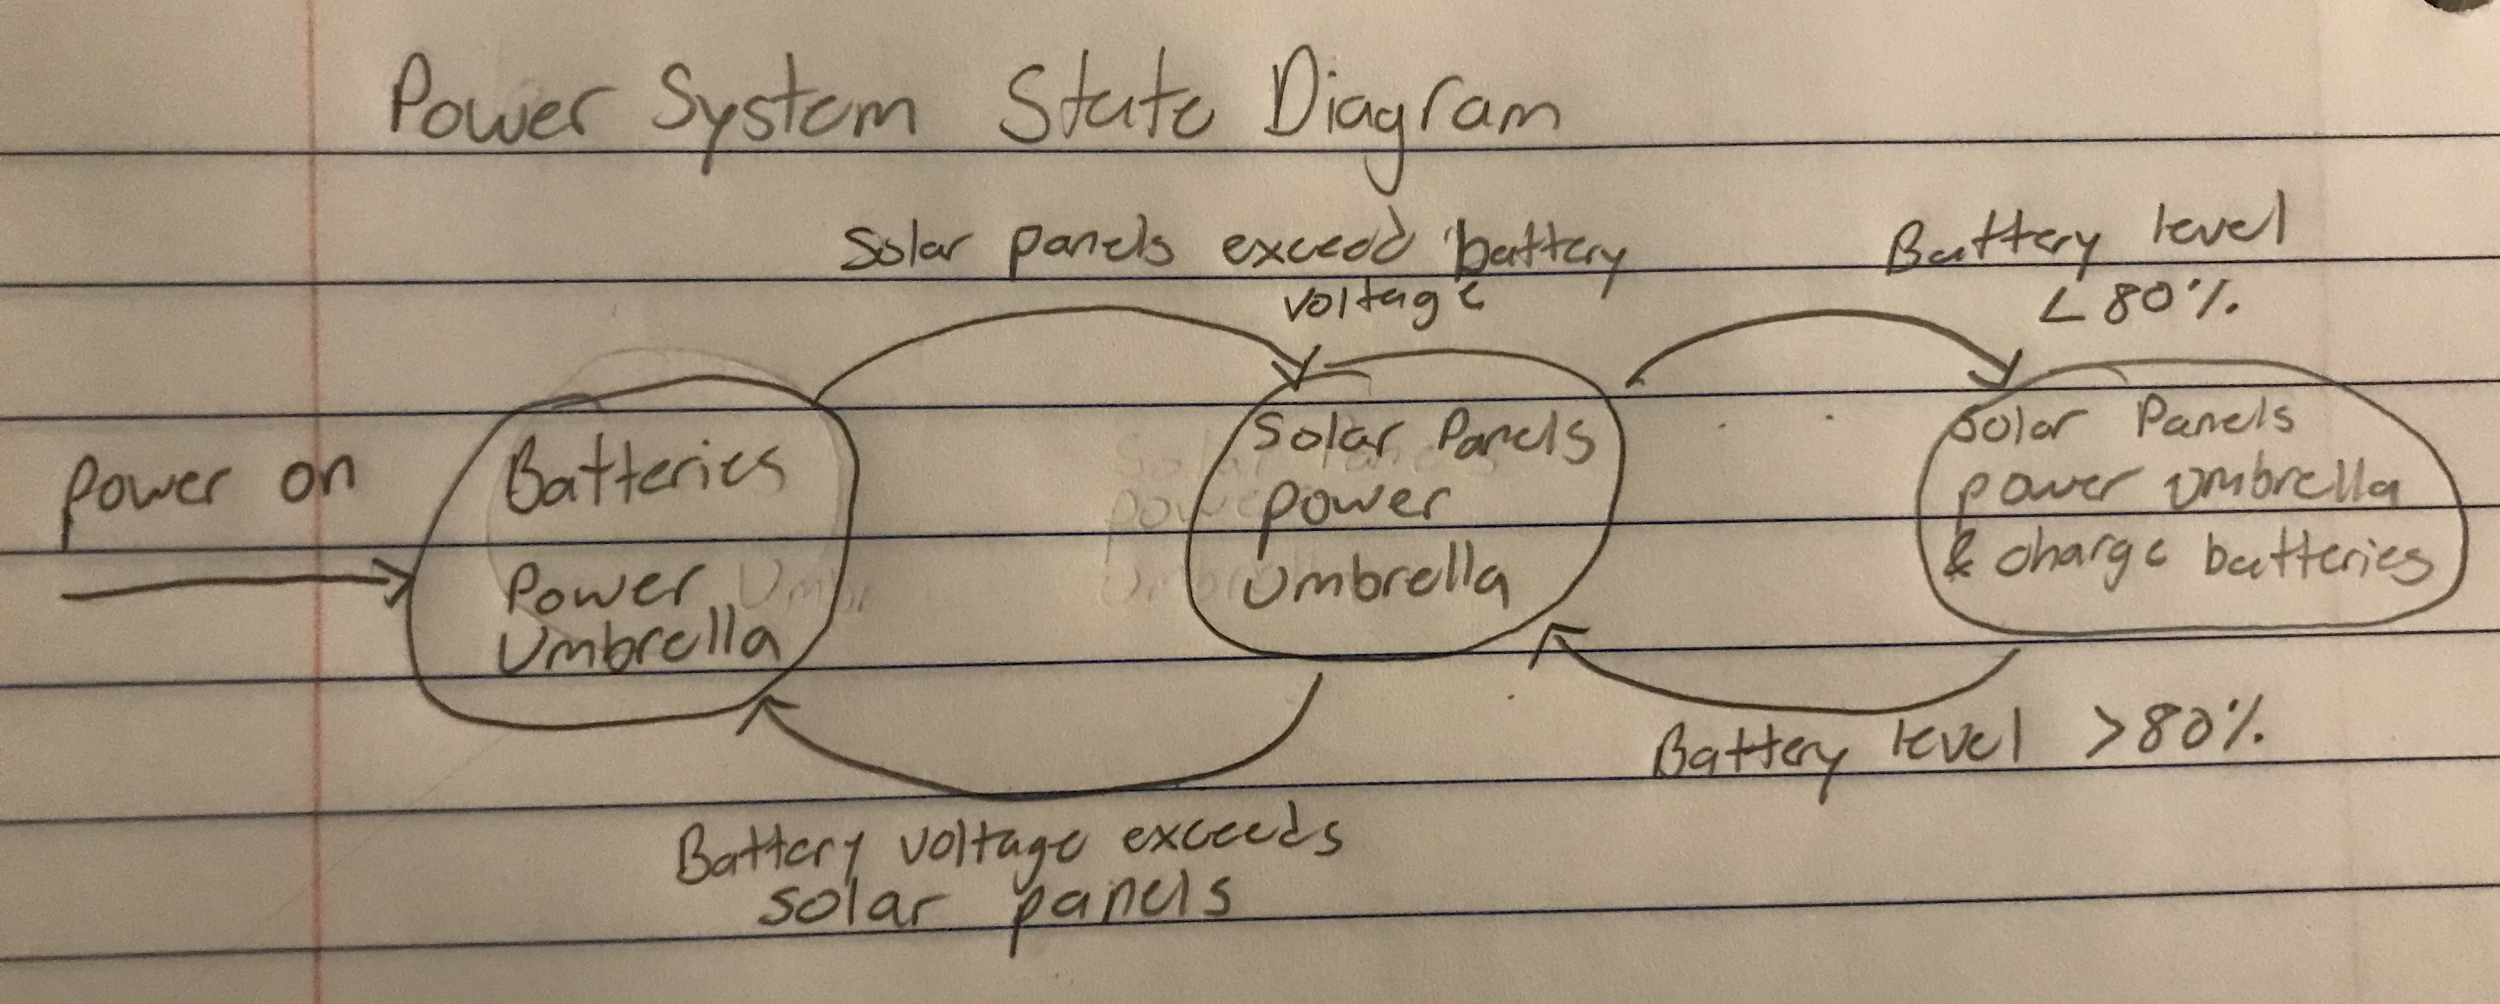 Power System State Diagram
Solar panels exceed battery
voltage
Battery level
<80%
Power on
Batteries
Power
Umbrella
Solar Panels
Power
Umbrella
Solar Panels
power Umbrella
& charge batteries
Battery level >80%
Battery voltage exceeds
solar panels